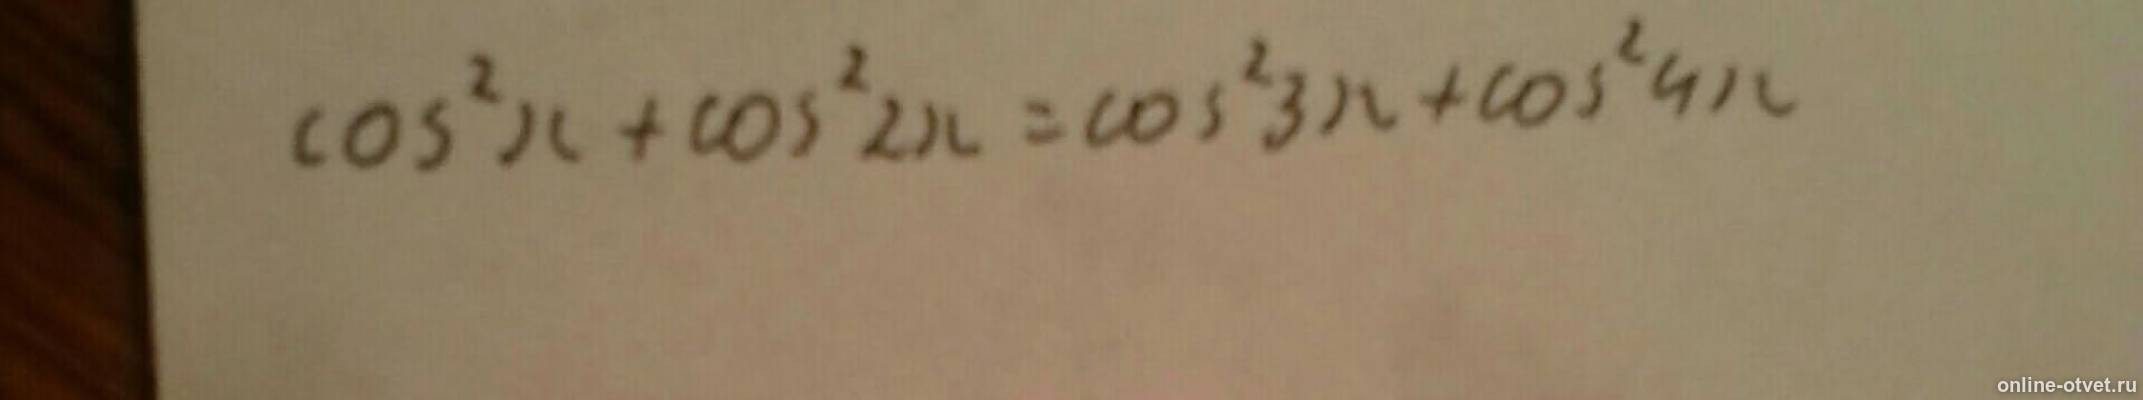 cos²x + cos²2x = cos²3x + cos²4x
online-otvet.ru